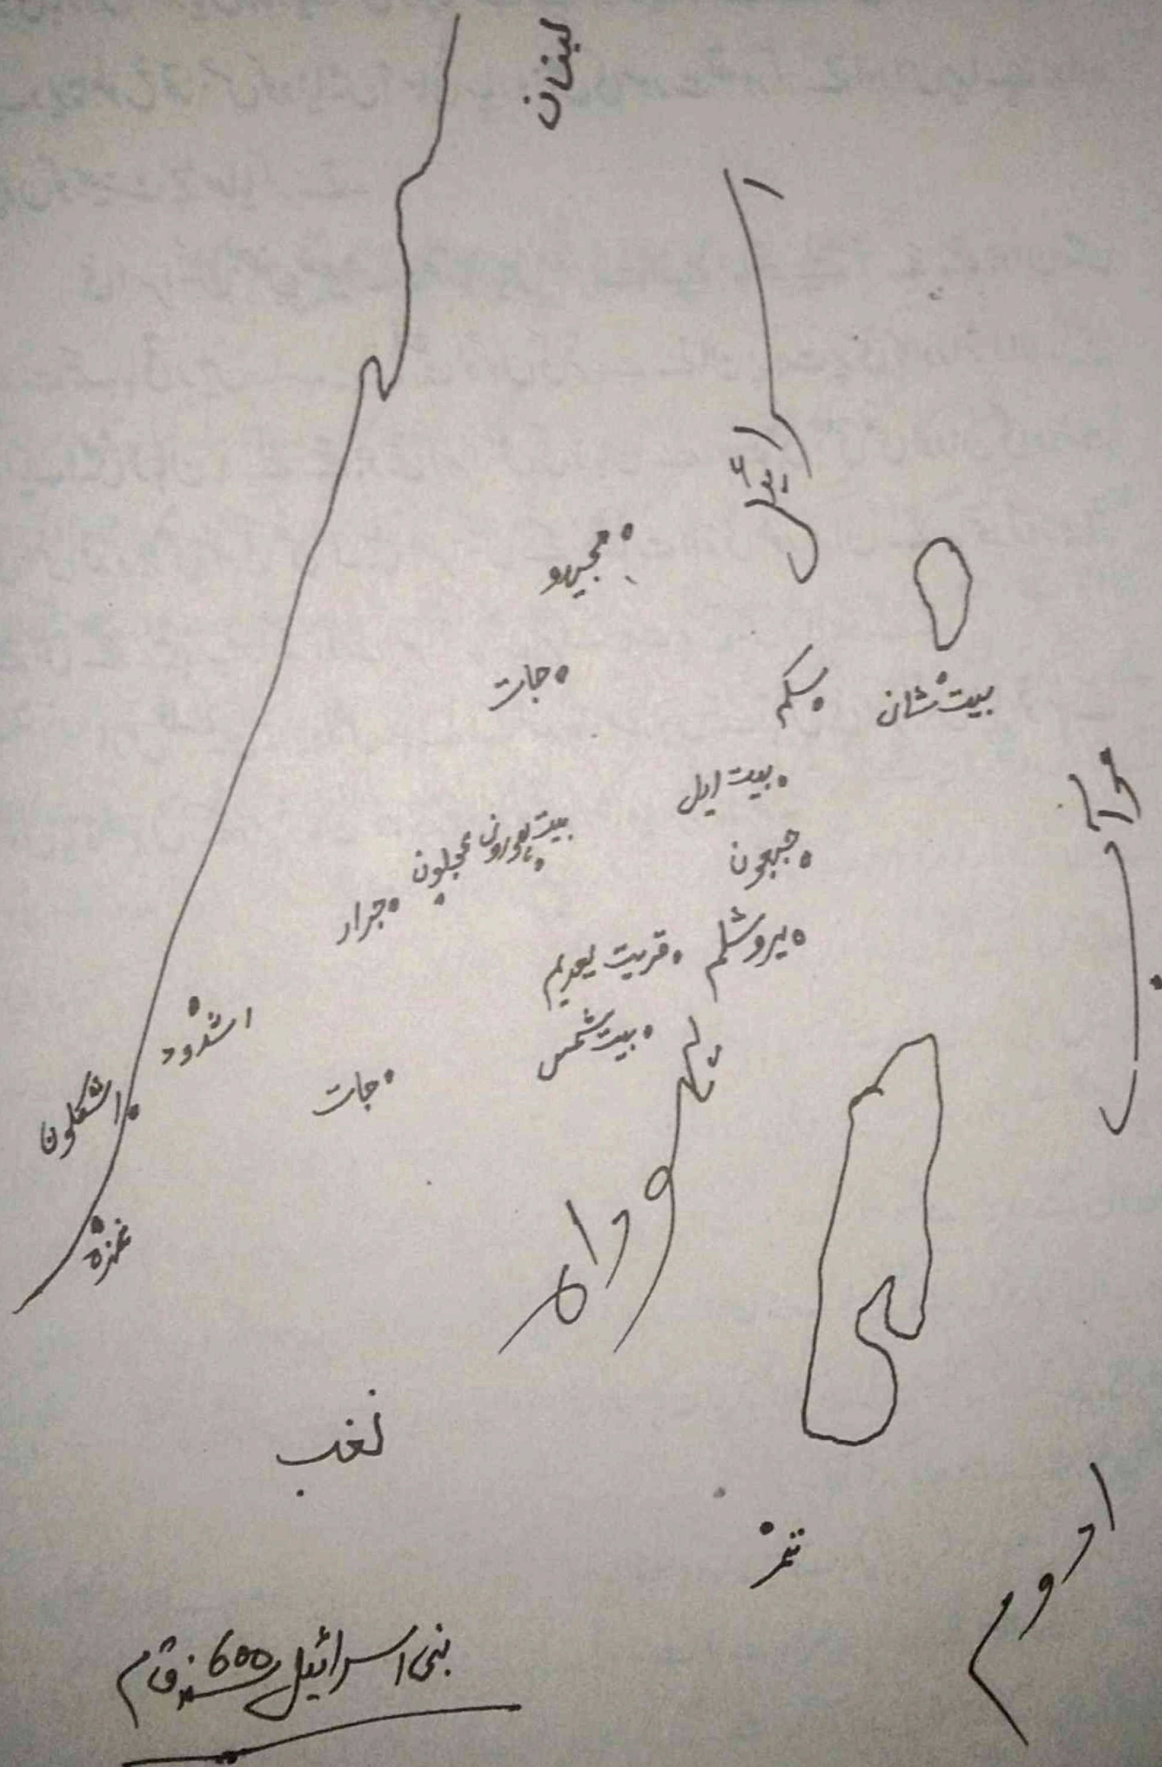 لبنان
اسرائیل
مجیدو
جات
سکم
بیت شان
بیت ایل
موآب
بیت ہورون
عجلون
جبعون
جرار
یروشلم
قریت یعریم
اشدود
بیت شمس
جات
اشکلون
یہوداہ
غزہ
نغب
تمر
ادوم
بنی اسرائیل 600 سنہ ق م